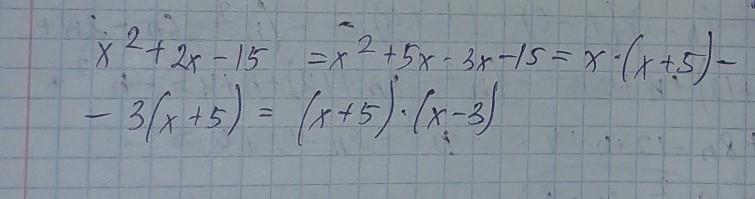 x² + 2x - 15 = x² + 5x - 3x - 15 = x · (x + 5) -
- 3(x + 5) = (x + 5) · (x - 3)